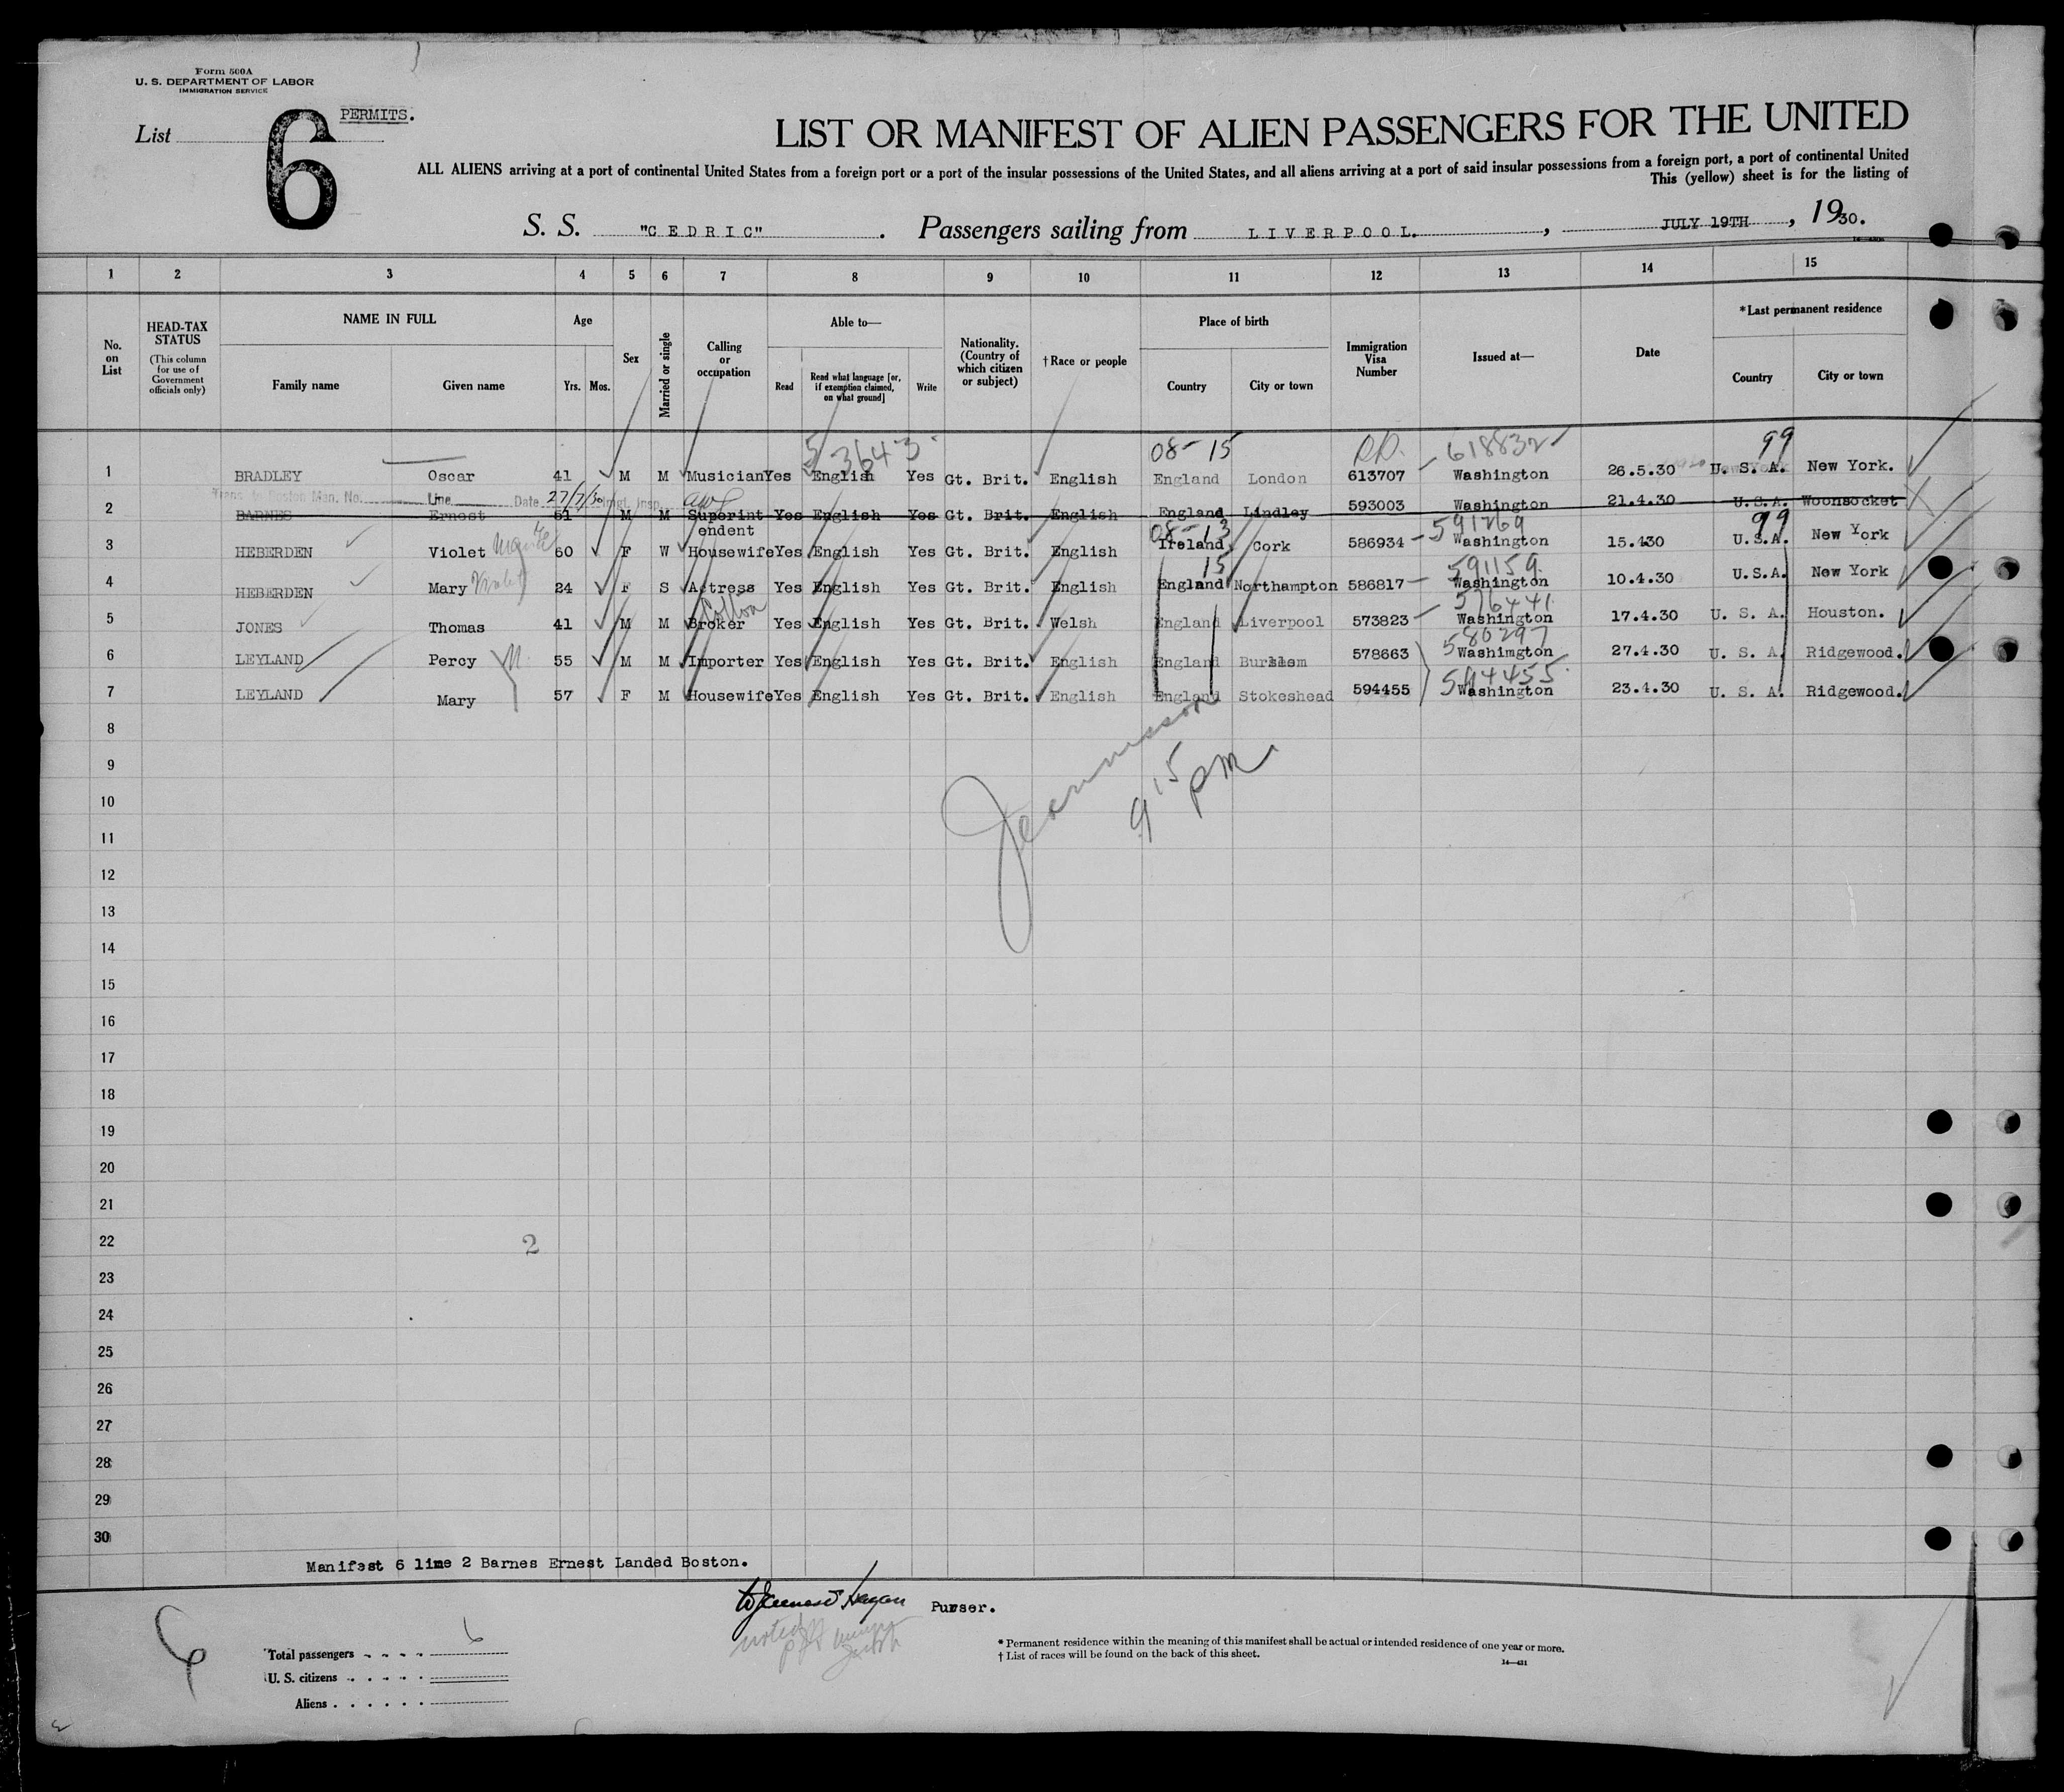 Form 500A
U. S. DEPARTMENT OF LABOR
IMMIGRATION SERVICE
PERMITS.
List 6
LIST OR MANIFEST OF ALIEN PASSENGERS FOR THE UNITED
ALL ALIENS arriving at a port of continental United States from a foreign port or a port of the insular possessions of the United States, and all aliens arriving at a port of said insular possessions from a foreign port, a port of continental United
This (yellow) sheet is for the listing of
S. S. "CEDRIC". Passengers sailing from LIVERPOOL., JULY 19TH, 1930.
1 2 3 4 5 6 7 8 9 10 11 12 13 14 15
No. on List
HEAD-TAX STATUS (This column for use of Government officials only)
NAME IN FULL Family name Given name
Age Yrs. Mos.
Sex
Married or single
Calling or occupation
Able to— Read Read what language [or, if exemption claimed, on what ground] Write
Nationality. (Country of which citizen or subject)
† Race or people
Place of birth Country City or town
Immigration Visa Number
Issued at—
Date
*Last permanent residence Country City or town
5 3643 08-15 618832 99
1 BRADLEY Oscar 41 M M Musician Yes English Yes Gt. Brit. English England London 613707 Washington 26.5.30 U. S. A. New York.
Trans. to Boston Man. No. Line Date 27/7/30 Imgt. Insp.
2 BARNES Ernest 61 M M Superintendent Yes English Yes Gt. Brit. English England Lindley 593003 Washington 21.4.30 U.S.A. Woonsocket
08-13 591269 99
3 HEBERDEN Violet 60 F W Housewife Yes English Yes Gt. Brit. English Ireland Cork 586934 Washington 15.430 U.S.A. New York
15 591159
4 HEBERDEN Mary Violet 24 F S Actress Yes English Yes Gt. Brit. English England Northampton 586817 Washington 10.4.30 U.S.A. New York
Cotton 576441
5 JONES Thomas 41 M M Broker Yes English Yes Gt. Brit. Welsh England Liverpool 573823 Washington 17.4.30 U. S. A. Houston.
580297
6 LEYLAND Percy M 55 M M Importer Yes English Yes Gt. Brit. English England Burslem 578663 Washimgton 27.4.30 U. S. A. Ridgewood.
594455
7 LEYLAND Mary 57 F M Housewife Yes English Yes Gt. Brit. English England Stokeshead 594455 Washington 23.4.30 U. S. A. Ridgewood.
8
9
9 15 pm
10
11
12
13
14
15
16
17
18
19
20
21
22
2
23
24
25
26
27
28
29
30
Manifest 6 line 2 Barnes Ernest Landed Boston.
Purser.
6
Total passengers 6
U. S. citizens
Aliens
* Permanent residence within the meaning of this manifest shall be actual or intended residence of one year or more.
† List of races will be found on the back of this sheet.